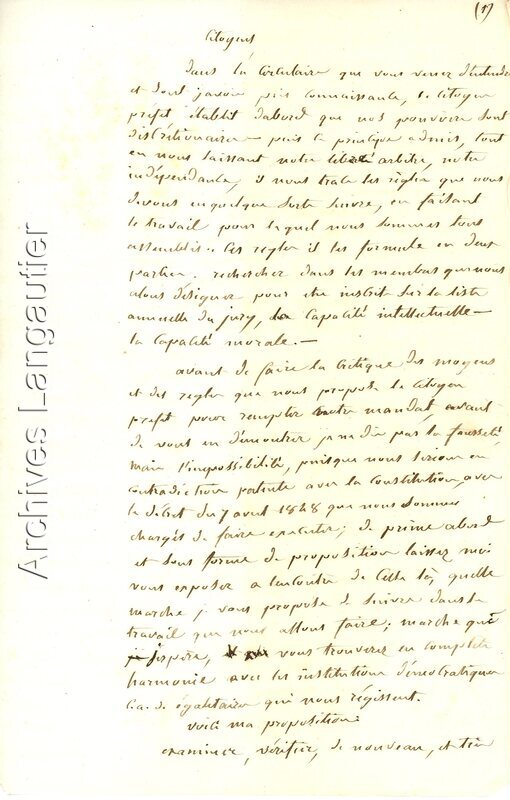 (1)
Citoyens
Dans la Circulaire que vous venez d'entendre
et dont j'avois pris connaissance, le Citoyen
préfet établit dabord que nos pouvoirs sont
discrétionnaires — puis ce principe admis, tout
en nous laissant notre liberté arbitre, notre
indépendance, il nous trace les règles que nous
devons en quelque sorte suivre, en faisant
le travail pour lequel nous sommes tous
assemblés. Ces regles il les formule en deux
parties. rechercher dans les membres que nous
alons désigner pour être inscrits sur la liste
annuelle du jury, la Capacité intellectuelle —
la Capacité morale. —
avant de faire la Critique des moyens
et des regles que nous propose le citoyen
prefet pour remplir notre mandat, avant
de vous en démontrer je ne dis pas la fausseté,
mais l'impossibilité, puisque nous serions en
contradiction patente avec la Constitution, avec
le décret du 7 aout 1848 que nous sommes
chargés de faire executer; de prime abord
et sous forme de proposition laissez moi
vous exposer a lencontre de Celle là, quelle
marche je vous propose de suivre dans le
travail que nous allons faire; marche que
j'espère, vous trouverez en complète
harmonie avec les institutions démocratiques
c.a.d. égalitaires qui nous régissent.
voici ma proposition
examiner, vérifier, de nouveau, et très
Archives Langautier